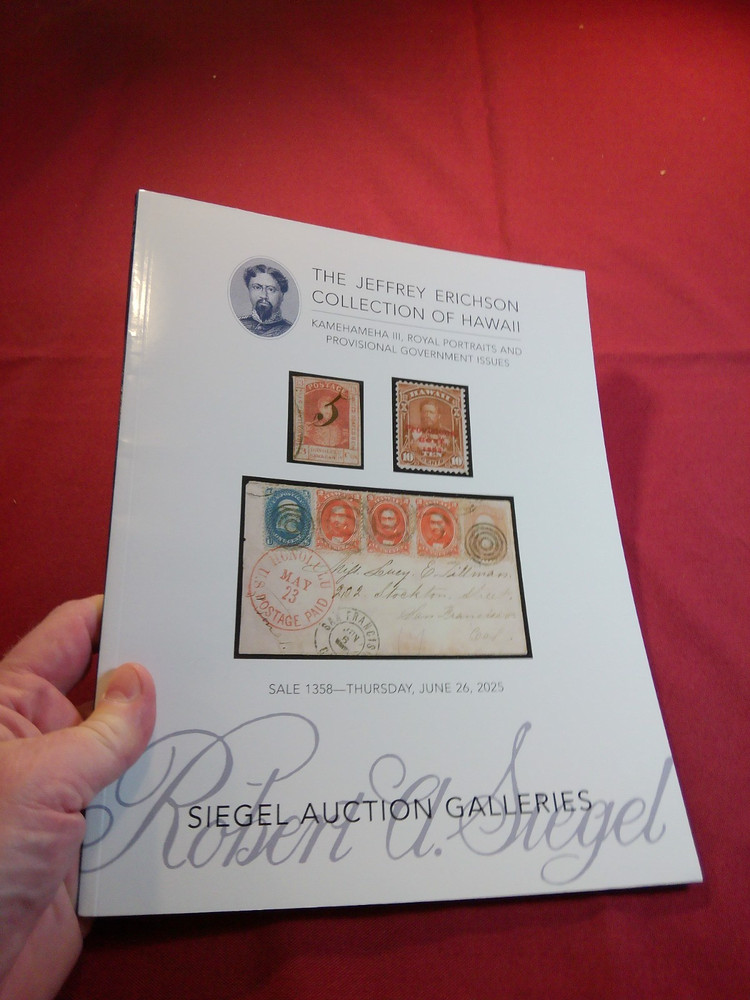 THE JEFFREY ERICHSON
COLLECTION OF HAWAII
KAMEHAMEHA III, ROYAL PORTRAITS AND
PROVISIONAL GOVERNMENT ISSUES
POSTAGE
5
HAWAII
GOVT.
10 10
HONOLULU
U.S.
MAY
23
POSTAGE PAID
Miss Lucy E. Tillman.
202 Stockton Street,
San Francisco
Cal.
SAN FRANCIS
JUN
6
SALE 1358—THURSDAY, JUNE 26, 2025
Robert A. Siegel
SIEGEL AUCTION GALLERIES